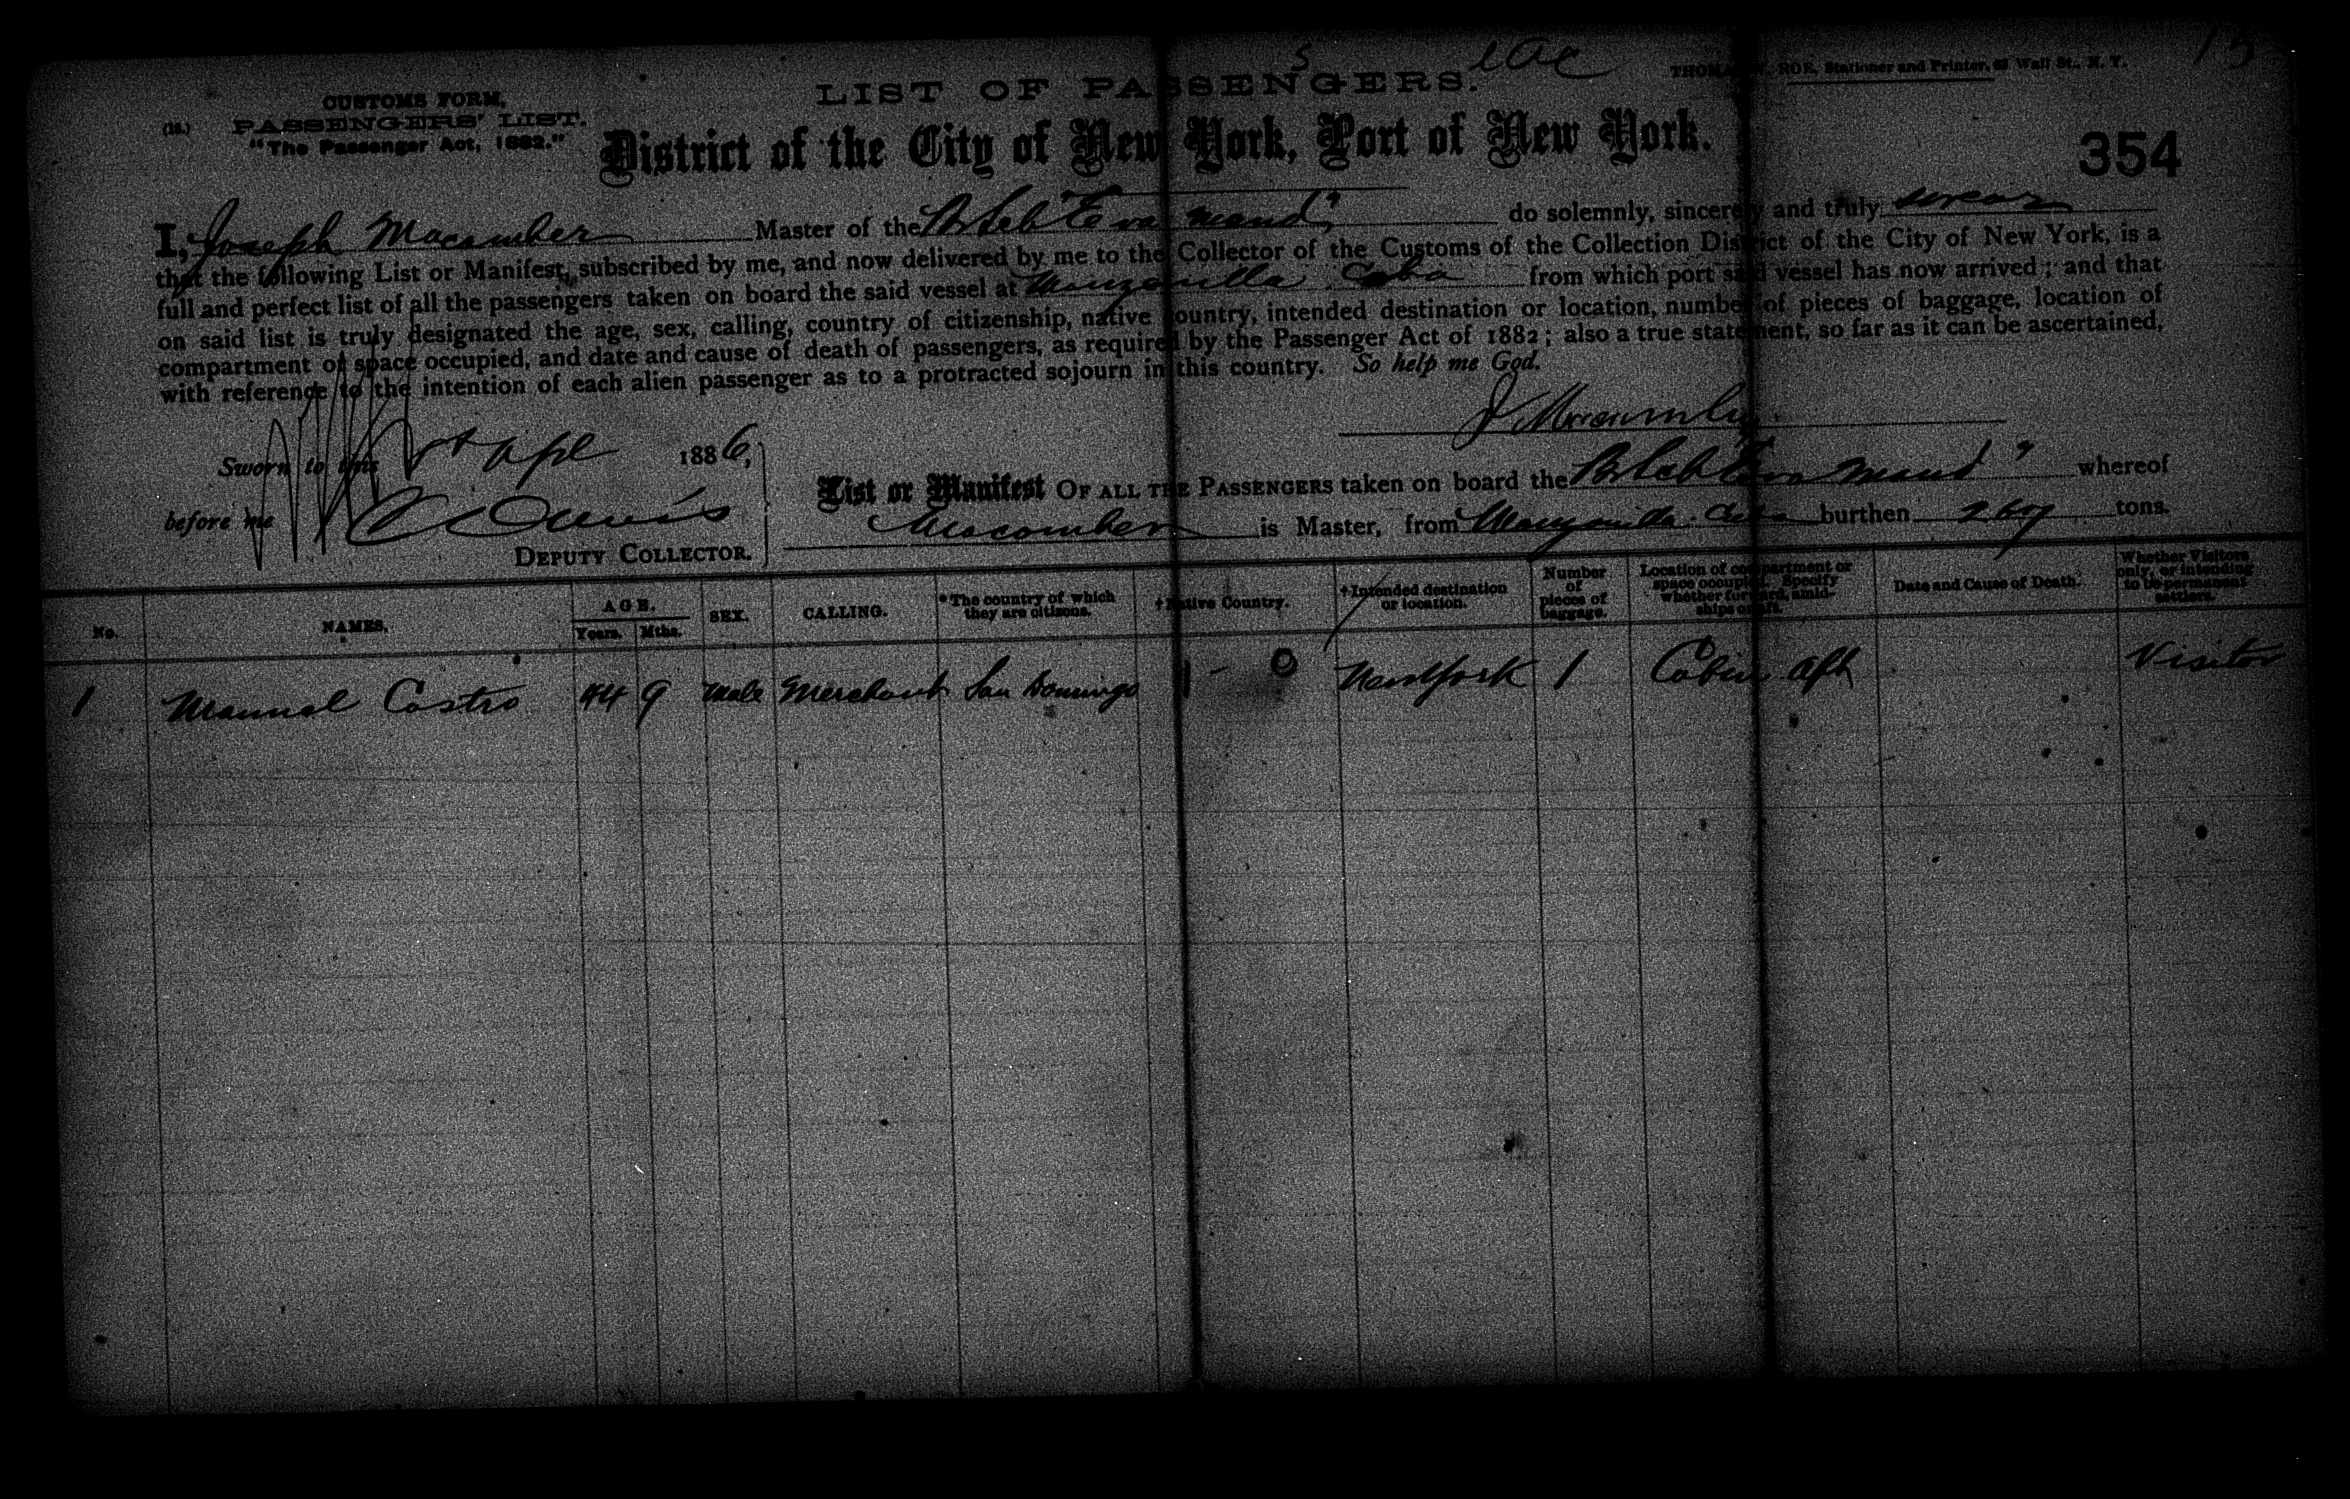 LIST OF PASSENGERS.
THOMAS ROE, Stationer and Printer, Wall St., N. Y.
CUSTOMS FORM,
(16.) PASSENGERS' LIST.
"The Passenger Act, 1882."
District of the City of New York, Port of New York.
354
I, Joseph Macomber Master of the Br Sch "Eva Maud" do solemnly, sincerely and truly swear
that the following List or Manifest, subscribed by me, and now delivered by me to the Collector of the Customs of the Collection District of the City of New York, is a
full and perfect list of all the passengers taken on board the said vessel at Manzanilla Cuba from which port said vessel has now arrived; and that
on said list is truly designated the age, sex, calling, country of citizenship, native country, intended destination or location, number of pieces of baggage, location of
compartment or space occupied, and date and cause of death of passengers, as required by the Passenger Act of 1882; also a true statement, so far as it can be ascertained,
with reference to the intention of each alien passenger as to a protracted sojourn in this country. So help me God.
J Macomber
Sworn to this Apl 1886,
before me
DEPUTY COLLECTOR.
List or Manifest OF ALL THE PASSENGERS taken on board the Br Sch "Eva Maud" whereof
Macomber is Master, from Manzanilla Cuba burthen tons.
No. NAMES. AGE. Years. Mths. SEX. CALLING. *The country of which they are citizens. †Native Country. †Intended destination or location. Number of pieces of baggage. Location of compartment or space occupied. Specify whether forward, amidships or aft. Date and Cause of Death. Whether Visitors only, or intending to be permanent settlers.
1 Manuel Castro 44 9 Male Merchant San Domingo 1 - 0 New York 1 Cabin aft Visitor